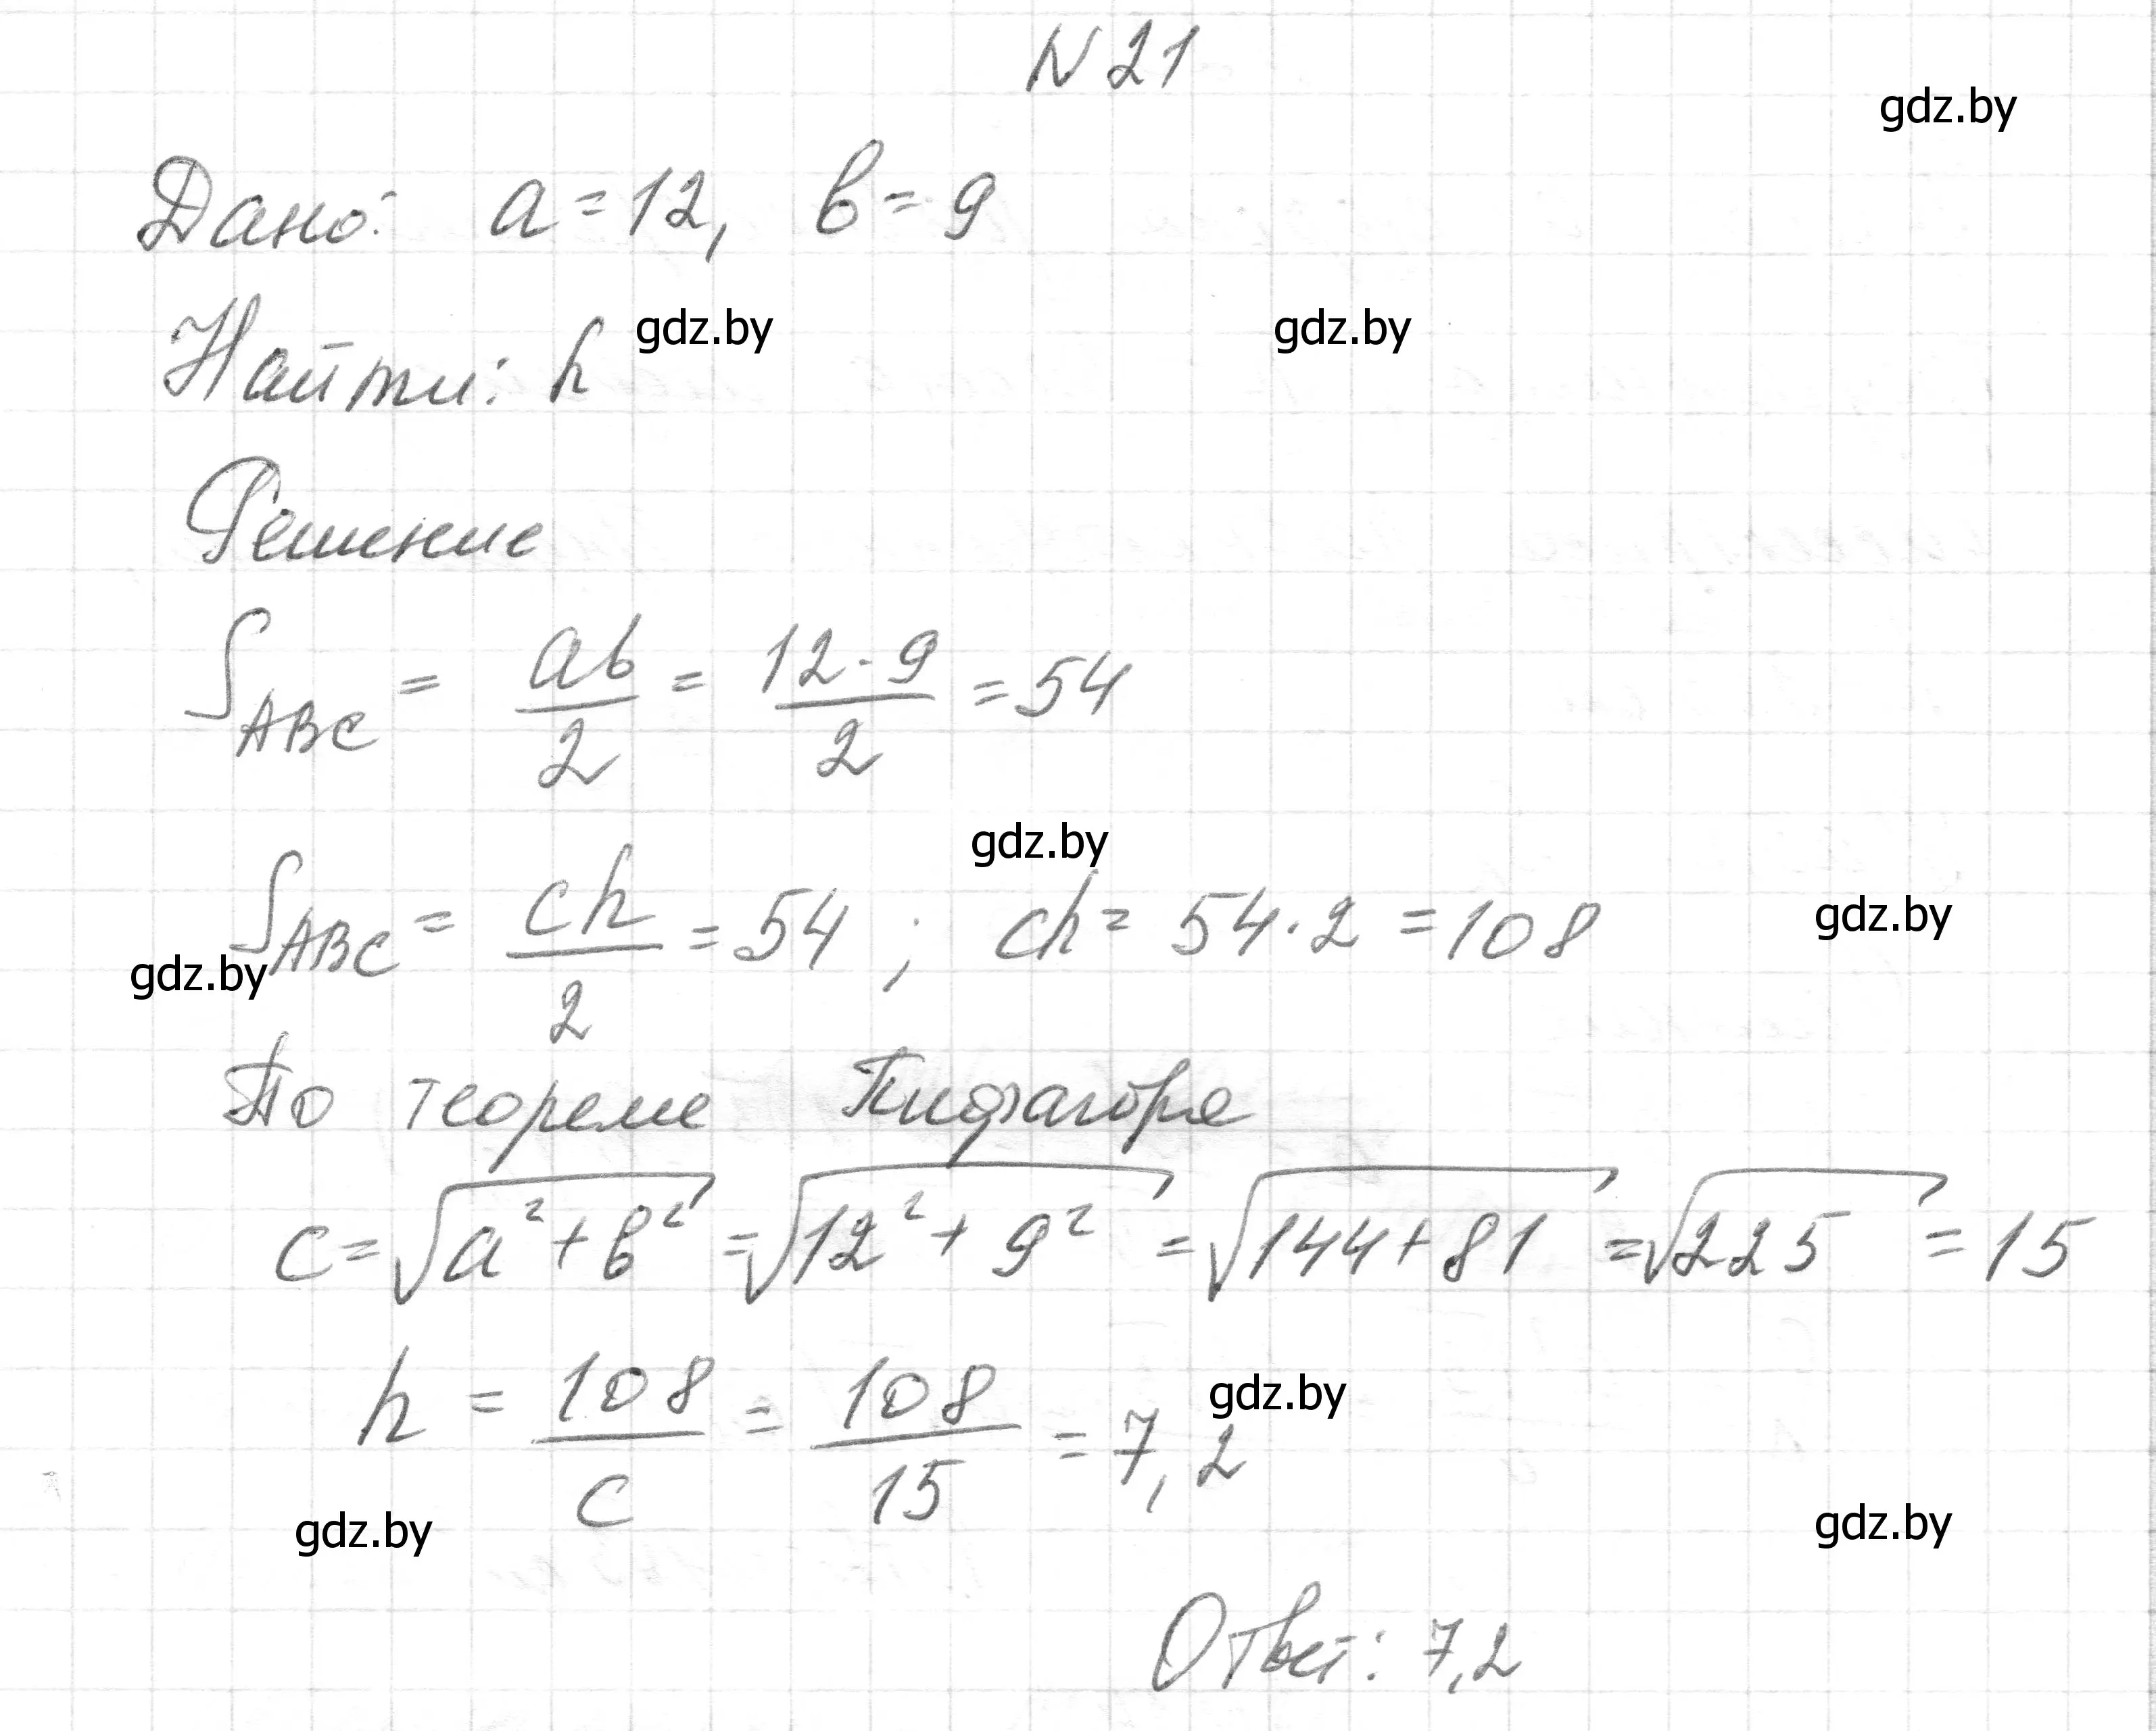 N 21
gdz.by
Дано: a = 12, b = 9
Найти: h
gdz.by
gdz.by
Решение
S_ABC = ab/2 = 12·9/2 = 54
gdz.by
S_ABC = ch/2 = 54; ch = 54·2 = 108
gdz.by
gdz.by
По теореме Пифагора
c = √(a² + b²) = √(12² + 9²) = √(144+81) = √225 = 15
h = 108/c = 108/15 = 7,2
gdz.by
gdz.by
gdz.by
Ответ: 7,2